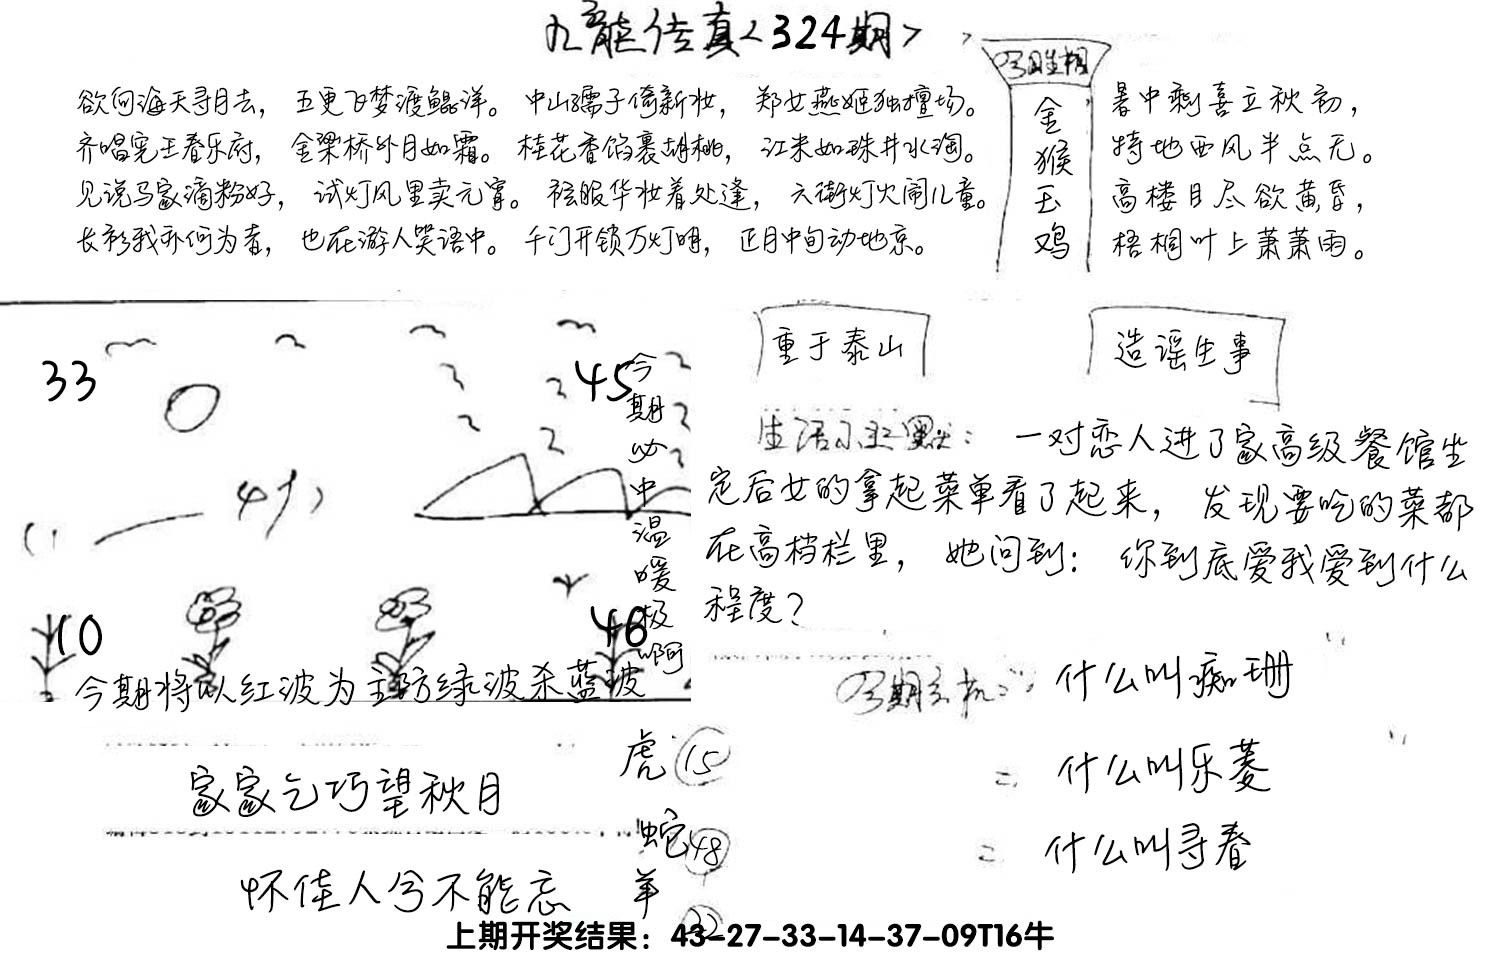 九龙传真<324期>
欲向海天寻月去，五更飞梦渡鲲洋。中山孺子倚新妆，郑女燕姬独擅场。
齐唱宪王春乐府，金梁桥外月如霜。桂花香馅裹胡桃，江米如珠井水淘。
见说马家滴粉好，试灯风里卖元宵。袨服华妆着处逢，六街灯火闹儿童。
长衫我亦何为者，也在游人笑语中。千门开锁万灯明，正月中旬动地京。
金猴玉鸡
暑中剩喜立秋初，
特地西风半点无。
高楼目尽欲黄昏，
梧桐叶上萧萧雨。
33
45
10
46
今期必中温暖极啊
今期将以红波为主防绿波杀蓝波
重于泰山
造谣生事
生活小幽默：一对恋人进了家高级餐馆坐
定后女的拿起菜单看了起来，发现要吃的菜都
在高档栏里，她问到：你到底爱我爱到什么
程度？
家家乞巧望秋月
怀佳人兮不能忘
虎 15
蛇 48
羊 32
什么叫痴珊
什么叫乐菱
什么叫寻春
上期开奖结果：43-27-33-14-37-09T16牛